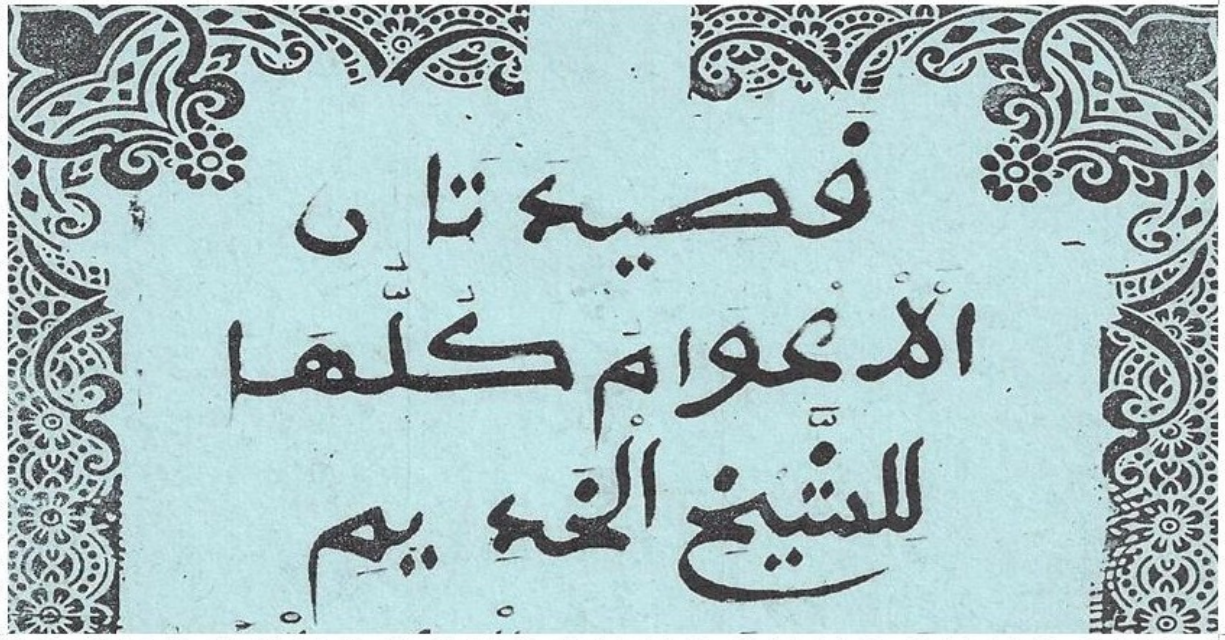 قَصيدَتَان
الْأَعْوَامَ كُلَّهَا
لِلشَّيْخِ الْخَدِيمِ